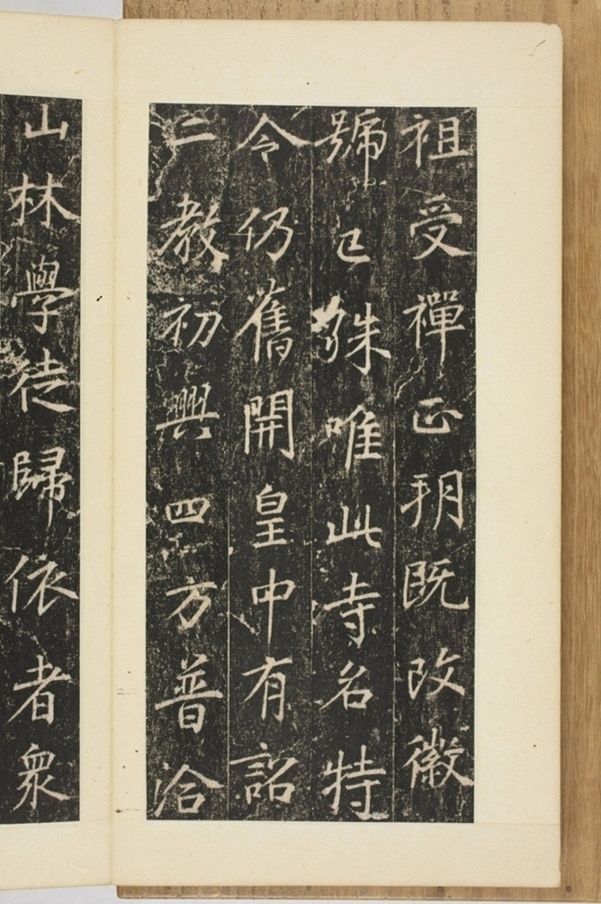 祖受禪正玥既改徽
號已殊唯此寺名特
令仍舊開皇中有詔
二教初興四方普洽
山林學徒歸依者眾